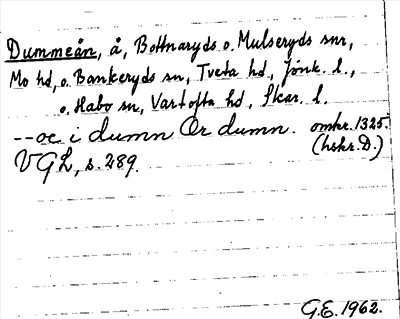 Dummeån, å, Bottnaryds o. Mulseryds snr,
Mo hd, o. Bankeryds sn, Tveta hd, Jönk. l.,
o. Habo sn, Vartofta hd, Skar. l.
--oc i dumn Or dumn. omkr. 1325.
VGL, s. 289. (hskr. D.)
G.E. 1962.